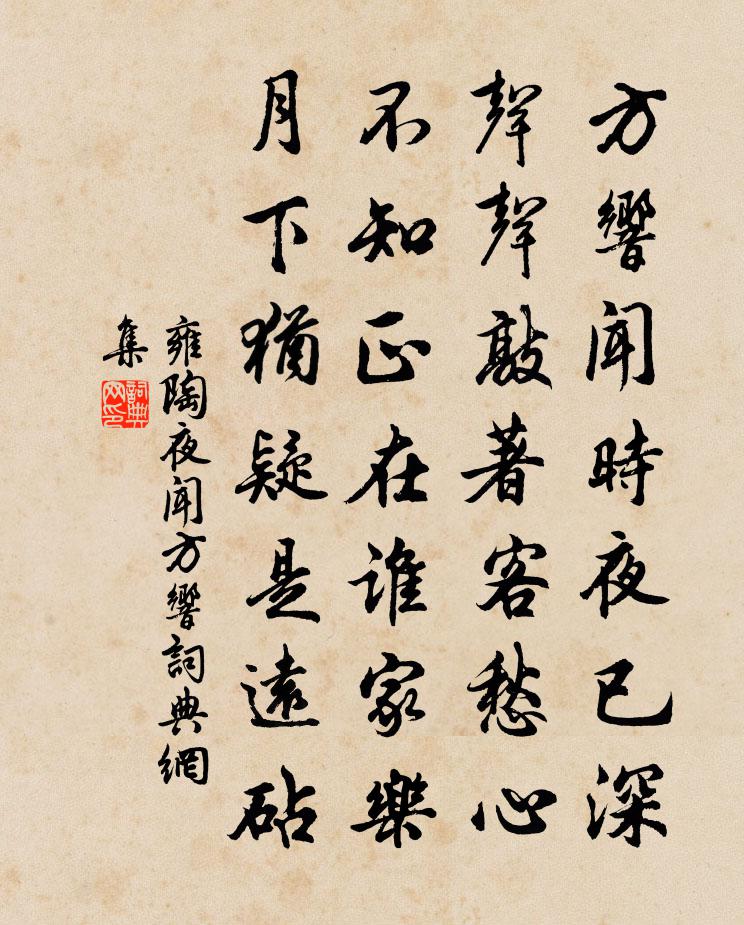 方響聞時夜已深
聲聲敲著客愁心
不知正在誰家樂
月下猶疑是遠砧
雍陶夜聞方響詞典網
集
詞典
网印